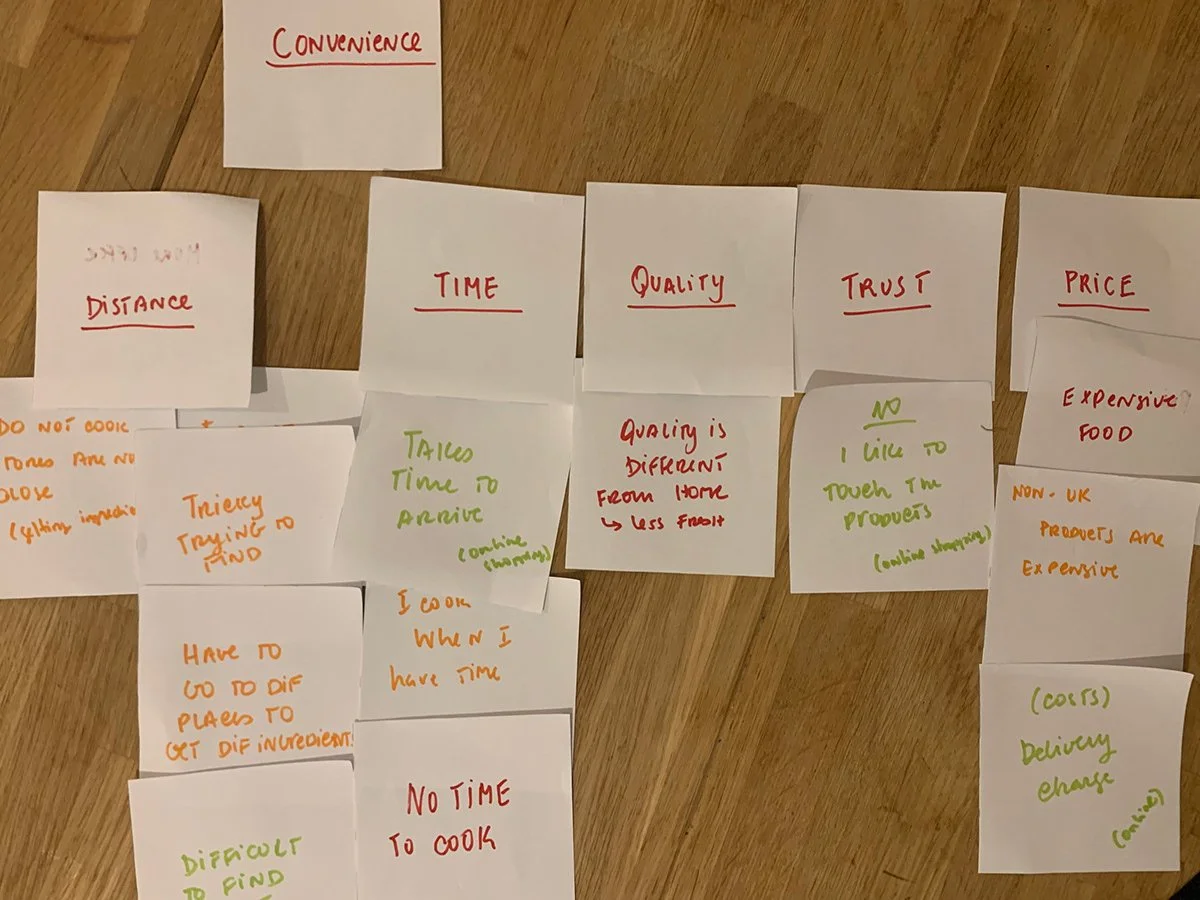 CONVENIENCE
DISTANCE
TIME
QUALITY
TRUST
PRICE
DO NOT COOK
TORES ARE NO
CLOSE
(getting
TRICKY
TRYING TO
FIND
HAVE TO
GO TO DIF
PLACES TO
GET DIF INGREDIENTS
DIFFICULT
TO FIND
TAKES
TIME TO
ARRIVE
(online
shopping)
I COOK
WHEN I
have TIME
NO TIME
TO COOK
QUALITY IS
DIFFERENT
FROM HOME
↳ LESS FRESH
NO
I LIKE TO
TOUCH THE
PRODUCTS
(online shopping)
EXPENSIVE
FOOD
NON-UK
PRODUCTS ARE
EXPENSIVE
(COSTS)
Delivery
charge
(online)